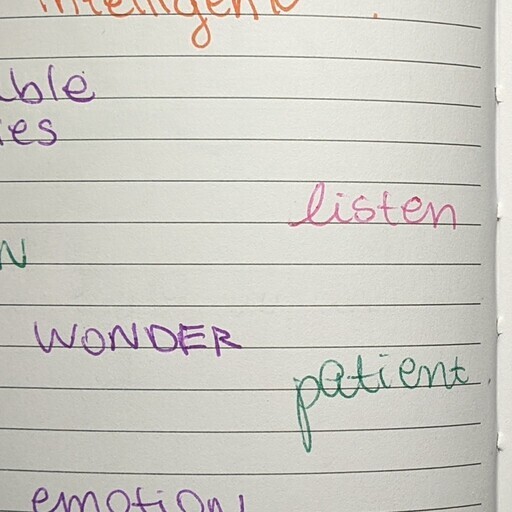 intelligent
able
ies
listen
N
WONDER
patient
emotion